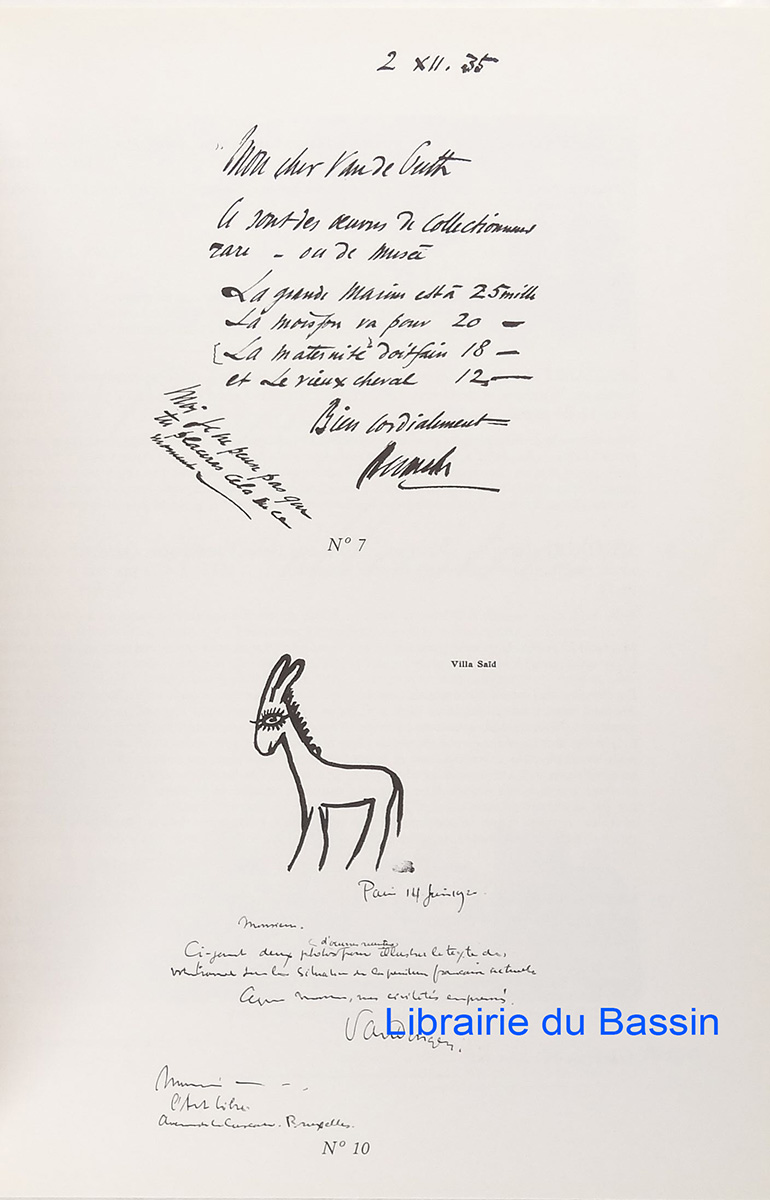 2 XII. 35
Mon cher Van de
Ce sont des œuvres de collectionneurs
rare - ou de musée
La grande Marine est à 25 mille
La moisson va pour 20 —
La maternité doit fair 18 —
et Le vieux cheval 12.—
Bien cordialement
Permeke
Moi je ne peux pas que
tu places cela
moment
N° 7
Villa Saïd
Paris 14 Juin 192
Monsieur.
d'œuvres récentes
Ci-joint deux photos pour illustrer le texte de
votre sur la situation de la peinture française actuelle
mes civilités empressées.
Van Dongen.
Librairie du Bassin
Monsieur
l'Art Libre.
Bruxelles.
N° 10